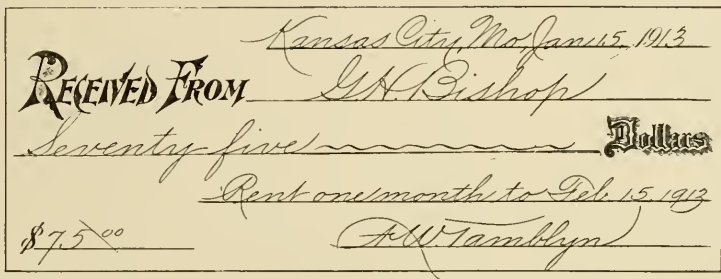 Kansas City, Mo, Jan 15, 1913
Received From G.H. Bishop
Seventy five Dollars
Rent one month to Feb. 15, 1913
$75.00
F.W. Tamblyn